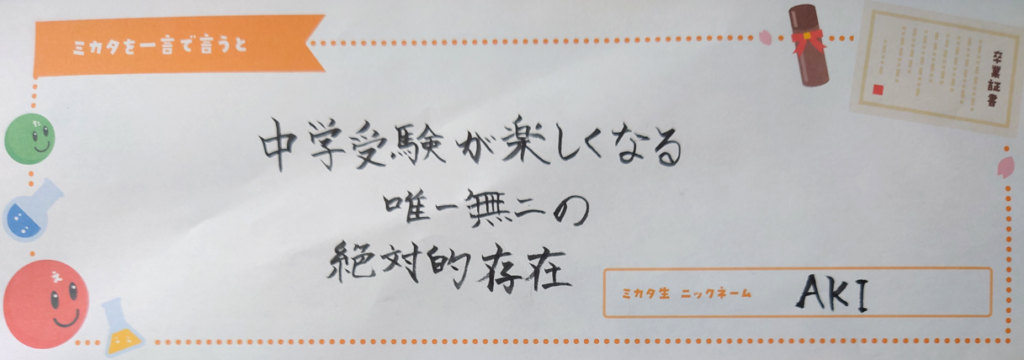 ミカタを一言で言うと
卒業証書
た
中学受験が楽しくなる
唯一無二の
絶対的存在
え
ミカタ生 ニックネーム
AKI